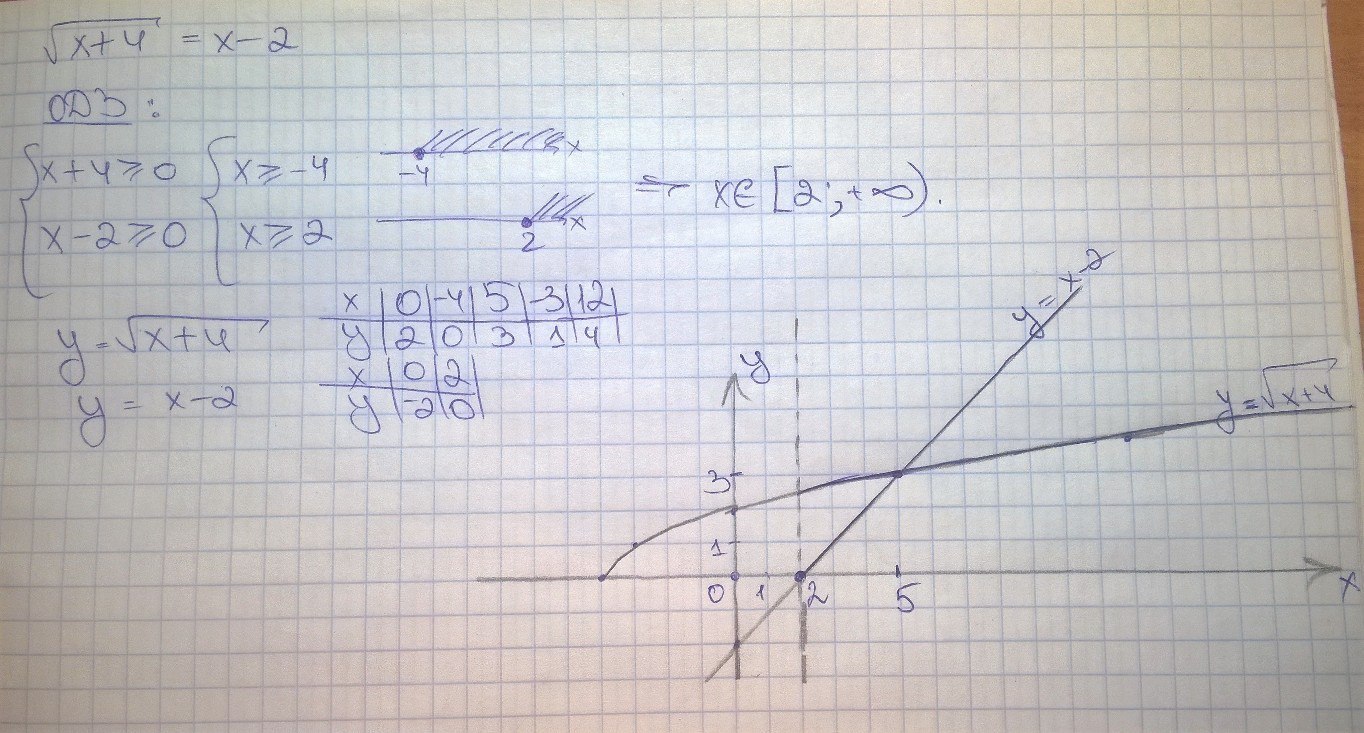 √x+4 = x-2
ОДЗ:
{x+4≥0 {x≥-4 -4 x
{x-2≥0 {x≥2 2 x ⇒ x∈[2;+∞).
y=√x+4
x | 0 | -4 | 5 | -3 | 12
y | 2 | 0 | 3 | 1 | 4
y = x-2
x | 0 | 2
y | -2 | 0
y
y=x-2
y=√x+4
3
1
0 1 2 5 x